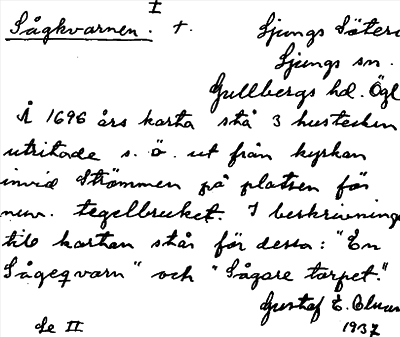 I
Sågkvarnen. +. Ljungs Säteri
Ljungs sn.
Gullbergs hd. Ögl
Å 1696 års karta stå 3 hustecken
utritade s. ö. ut från kyrkan
invid Strömmen på platsen för
nuv. tegelbruket. I beskrivninge
till kartan står för dessa: "En
Sågeqvarn" och "Sågare torpet."
Gustaf E.
Se II 1937